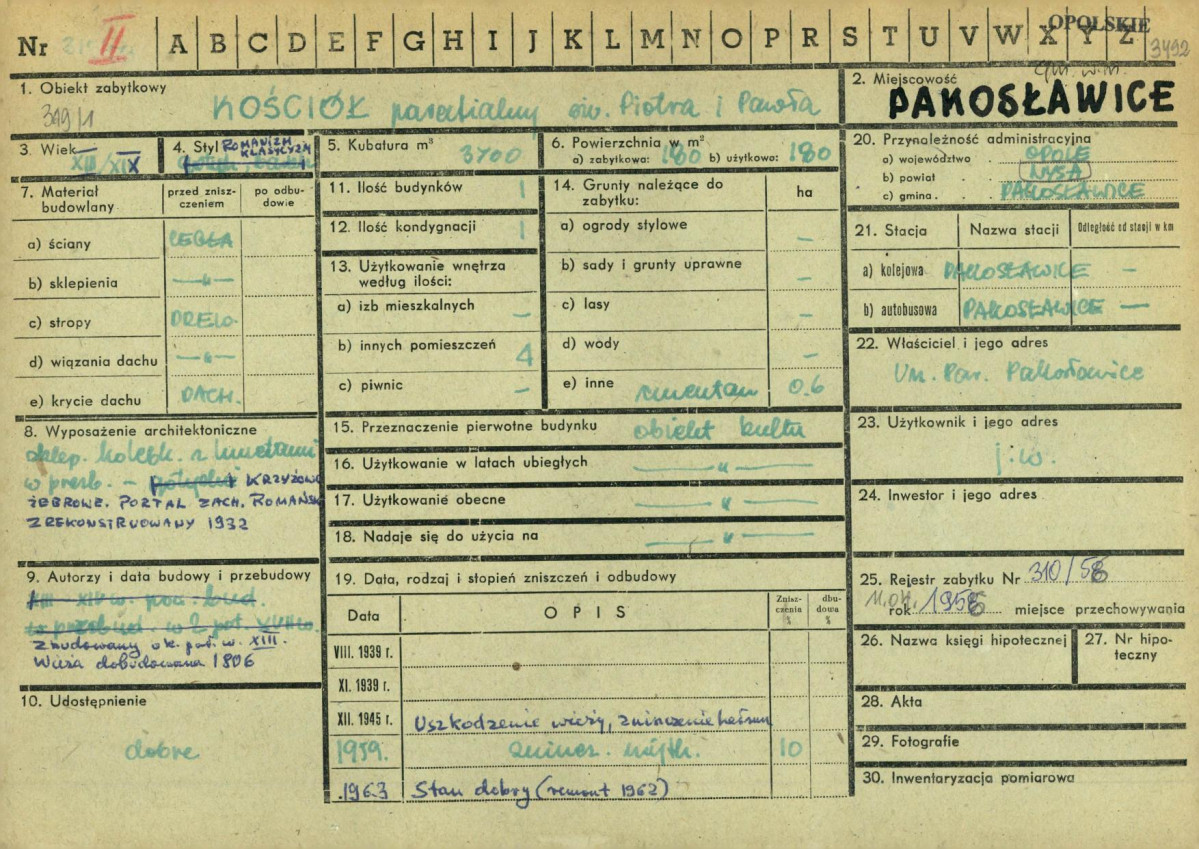 Nr II A B C D E F G H I J K L M N O P R S T U V W X Y Z
OPOLSKIE
3492
1. Obiekt zabytkowy
349/1
KOŚCIÓŁ parafialny św. Piotra i Pawła
2. Miejscowość
gm. w.m.
PAKOSŁAWICE
3. Wiek
XIII/XIX
4. Styl ROMANIZM
KLASYCYZM
5. Kubatura m³ 3700
6. Powierzchnia w m²
a) zabytkowa: 180 b) użytkowa: 180
7. Materiał budowlany
przed zniszczeniem
po odbudowie
a) ściany CEGŁA
b) sklepienia —"—
c) stropy DREW.
d) wiązania dachu —"—
e) krycie dachu DACH.
8. Wyposażenie architektoniczne
sklep. kolebk. z lunetami
w prezb. — KRZYŻOWO
ŻEBROWE. PORTAL ZACH. ROMAŃSK
ZREKONSTRUOWANY 1932
9. Autorzy i data budowy i przebudowy
XIII - XIV w. poc. bud.
przebud. w 2 poł. XVIII w.
Zbudowany ok. poł. w. XIII.
Wieża dobudowana 1806
10. Udostępnienie
dobre
11. Ilość budynków 1
12. Ilość kondygnacji 1
13. Użytkowanie wnętrza
według ilości:
a) izb mieszkalnych —
b) innych pomieszczeń 4
c) piwnic —
14. Grunty należące do
zabytku:
ha
a) ogrody stylowe —
b) sady i grunty uprawne —
c) lasy —
d) wody —
e) inne cmentarz 0.6
15. Przeznaczenie pierwotne budynku obiekt kultu
16. Użytkowanie w latach ubiegłych —"—
17. Użytkowanie obecne —"—
18. Nadaje się do użycia na —"—
19. Data, rodzaj i stopień zniszczeń i odbudowy
Data
OPIS
Zniszczenia %
dbudowa %
VIII. 1939 r.
XI. 1939 r.
XII. 1945 r. Uszkodzenie wieży, zniszczenie hełmu
1959. zniszcz. 10
1963 Stan dobry (remont 1962)
20. Przynależność administracyjna
a) województwo OPOLE
b) powiat NYSA
c) gmina PAKOSŁAWICE
21. Stacja
Nazwa stacji
Odległość od stacji w km
a) kolejowa PAKOSŁAWICE —
b) autobusowa PAKOSŁAWICE —
22. Właściciel i jego adres
Par. Pakosławice
23. Użytkownik i jego adres
j.w.
24. Inwestor i jego adres
25. Rejestr zabytku Nr 310/58
rok 1958 miejsce przechowywania
26. Nazwa księgi hipotecznej
27. Nr hipoteczny
28. Akta
29. Fotografie
30. Inwentaryzacja pomiarowa